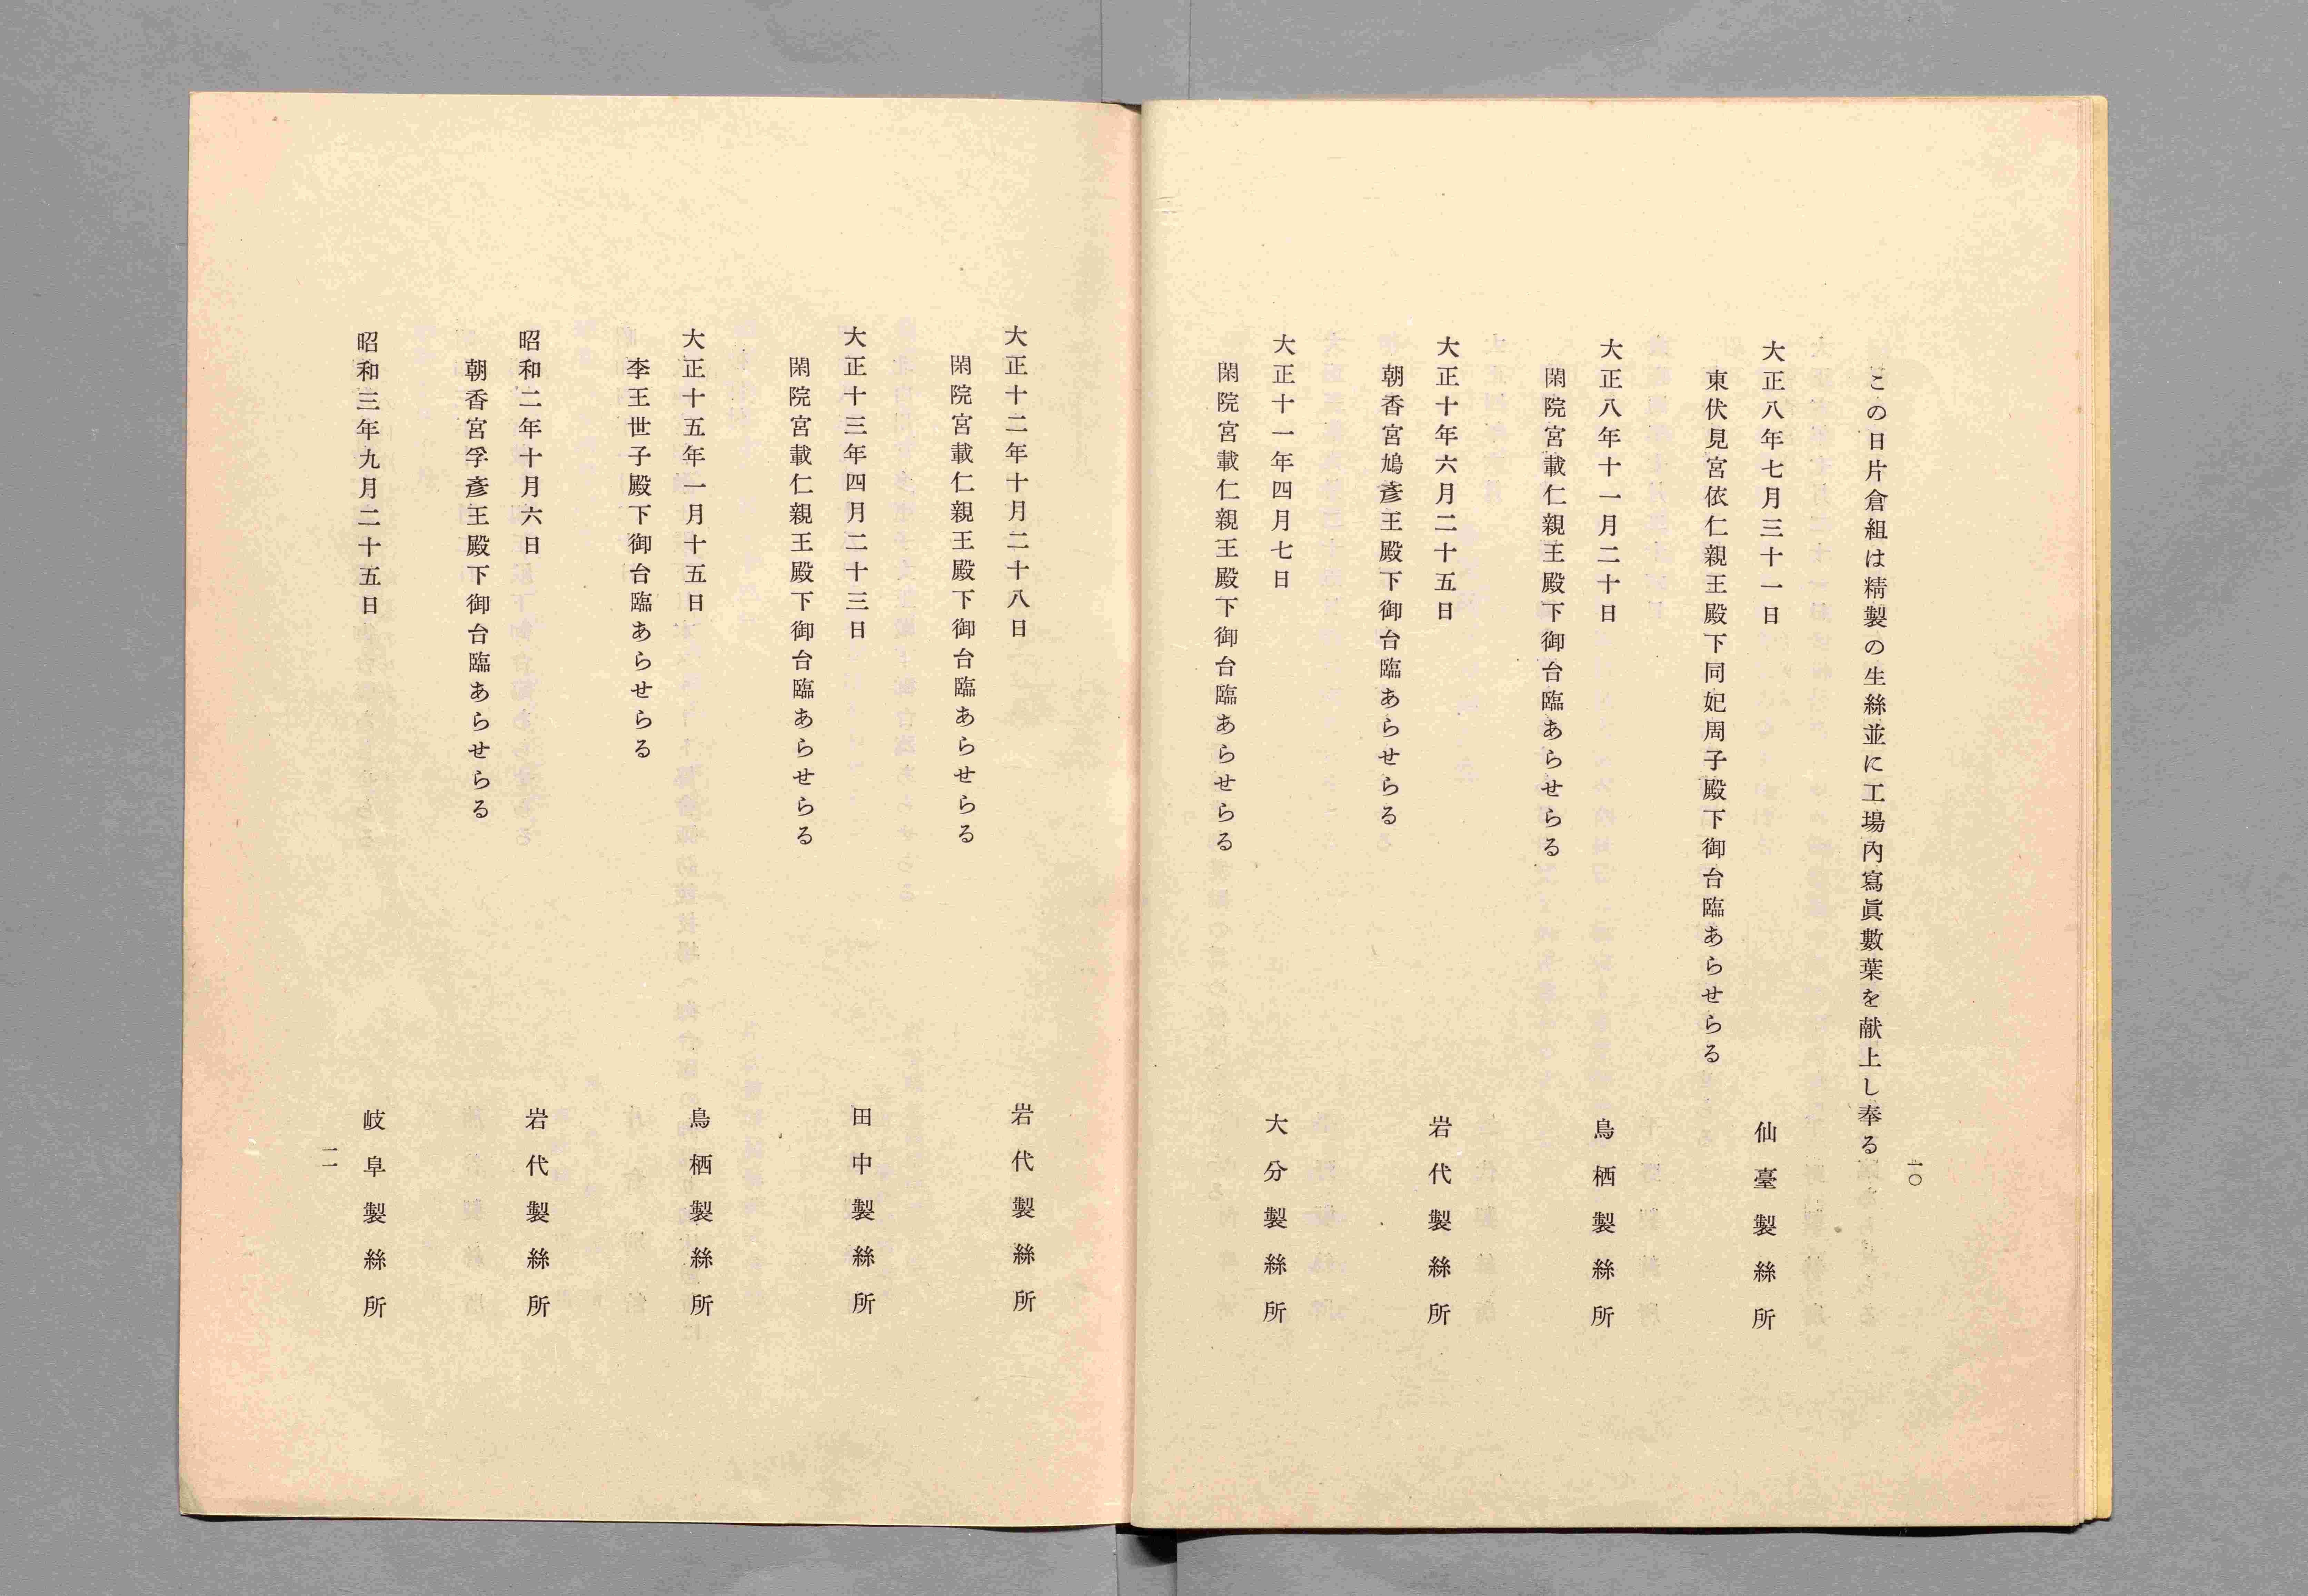 この日片倉組は精製の生絲並に工場內寫眞數葉を献上し奉る
大正八年七月三十一日　仙臺製絲所
東伏見宮依仁親王殿下同妃周子殿下御台臨あらせらる
大正八年十一月二十日　鳥栖製絲所
閑院宮載仁親王殿下御台臨あらせらる
大正十年六月二十五日　岩代製絲所
朝香宮鳩彥王殿下御台臨あらせらる
大正十一年四月七日　大分製絲所
閑院宮載仁親王殿下御台臨あらせらる
一〇
大正十二年十月二十八日　岩代製絲所
閑院宮載仁親王殿下御台臨あらせらる
大正十三年四月二十三日　田中製絲所
閑院宮載仁親王殿下御台臨あらせらる
大正十五年一月十五日　鳥栖製絲所
李王世子殿下御台臨あらせらる
昭和二年十月六日　岩代製絲所
朝香宮孚彥王殿下御台臨あらせらる
昭和三年九月二十五日　岐阜製絲所
一一